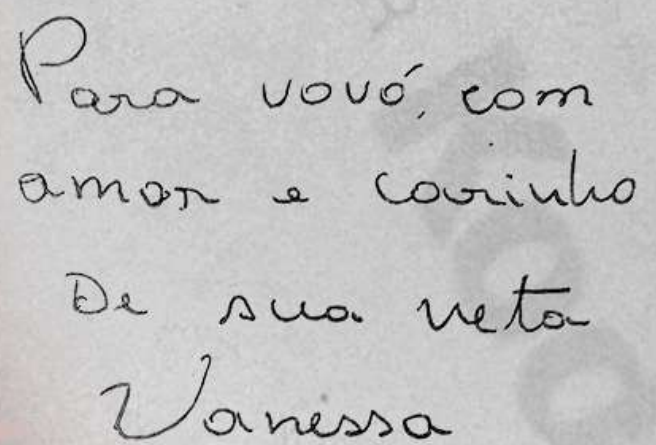 Para vovó, com
amor e carinho
De sua neta
Vanessa